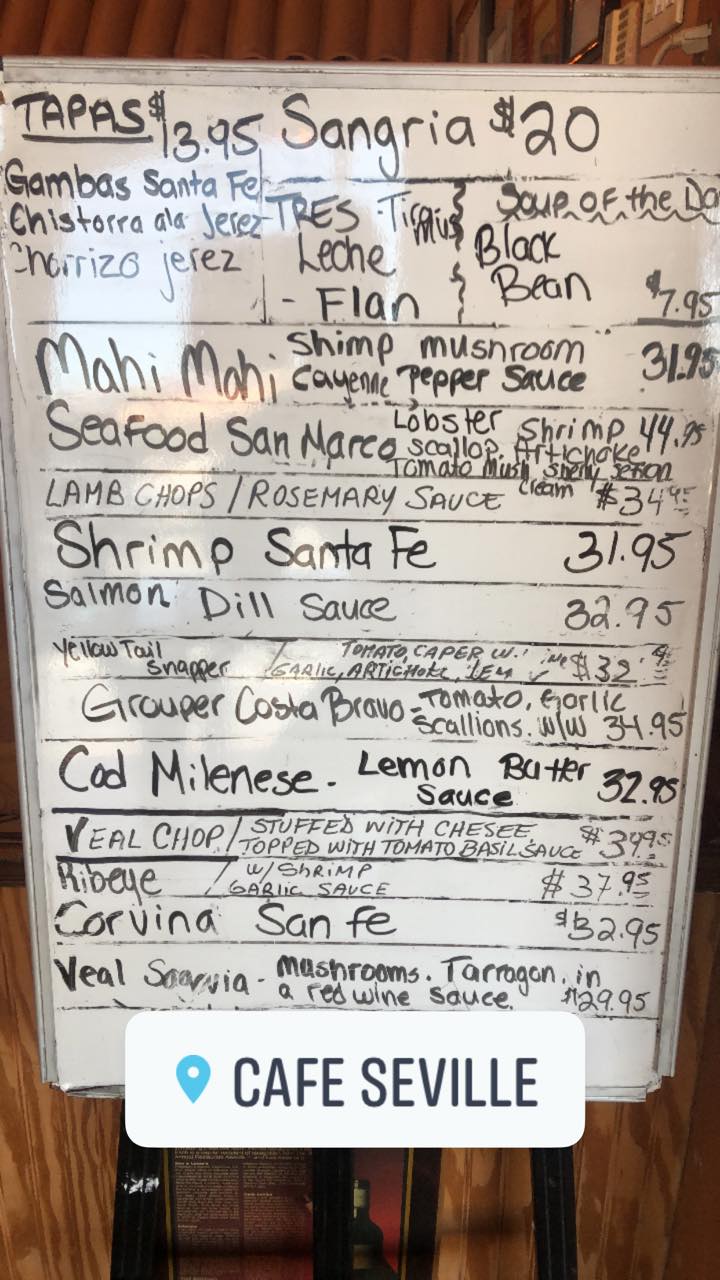 TAPAS $13.95 Sangria $20
Gambas Santa Fe
Chistorra ala Jerez
Chorrizo jerez
TRES
Leche
- Flan
Soup of the Da
Black
Bean
$7.95
Mahi Mahi Shimp mushroom 31.95
Cayenne Pepper Sauce
Seafood San Marco Lobster Shrimp 44.95
scallop. Artichoke
Tomato Mush Sherry
Cream
LAMB CHOPS / ROSEMARY SAUCE $34.95
Shrimp Santa Fe 31.95
Salmon Dill Sauce 32.95
Yellow Tail / TOMATO, CAPER W.
Snapper GARLIC, ARTICHOKE, $32.95
Grouper Costa Bravo - Tomato, Garlic
Scallions. W/W 34.95
Cod Milenese. Lemon Butter 32.95
Sauce
VEAL CHOP / STUFFED WITH CHESEE
TOPPED WITH TOMATO BASIL SAUCE $39.95
Ribeye / W/ SHRIMP
GARLIC SAUCE $37.95
Corvina San fe $32.95
Veal - Mushrooms. Tarragon, in
a red wine sauce. $29.95
CAFE SEVILLE